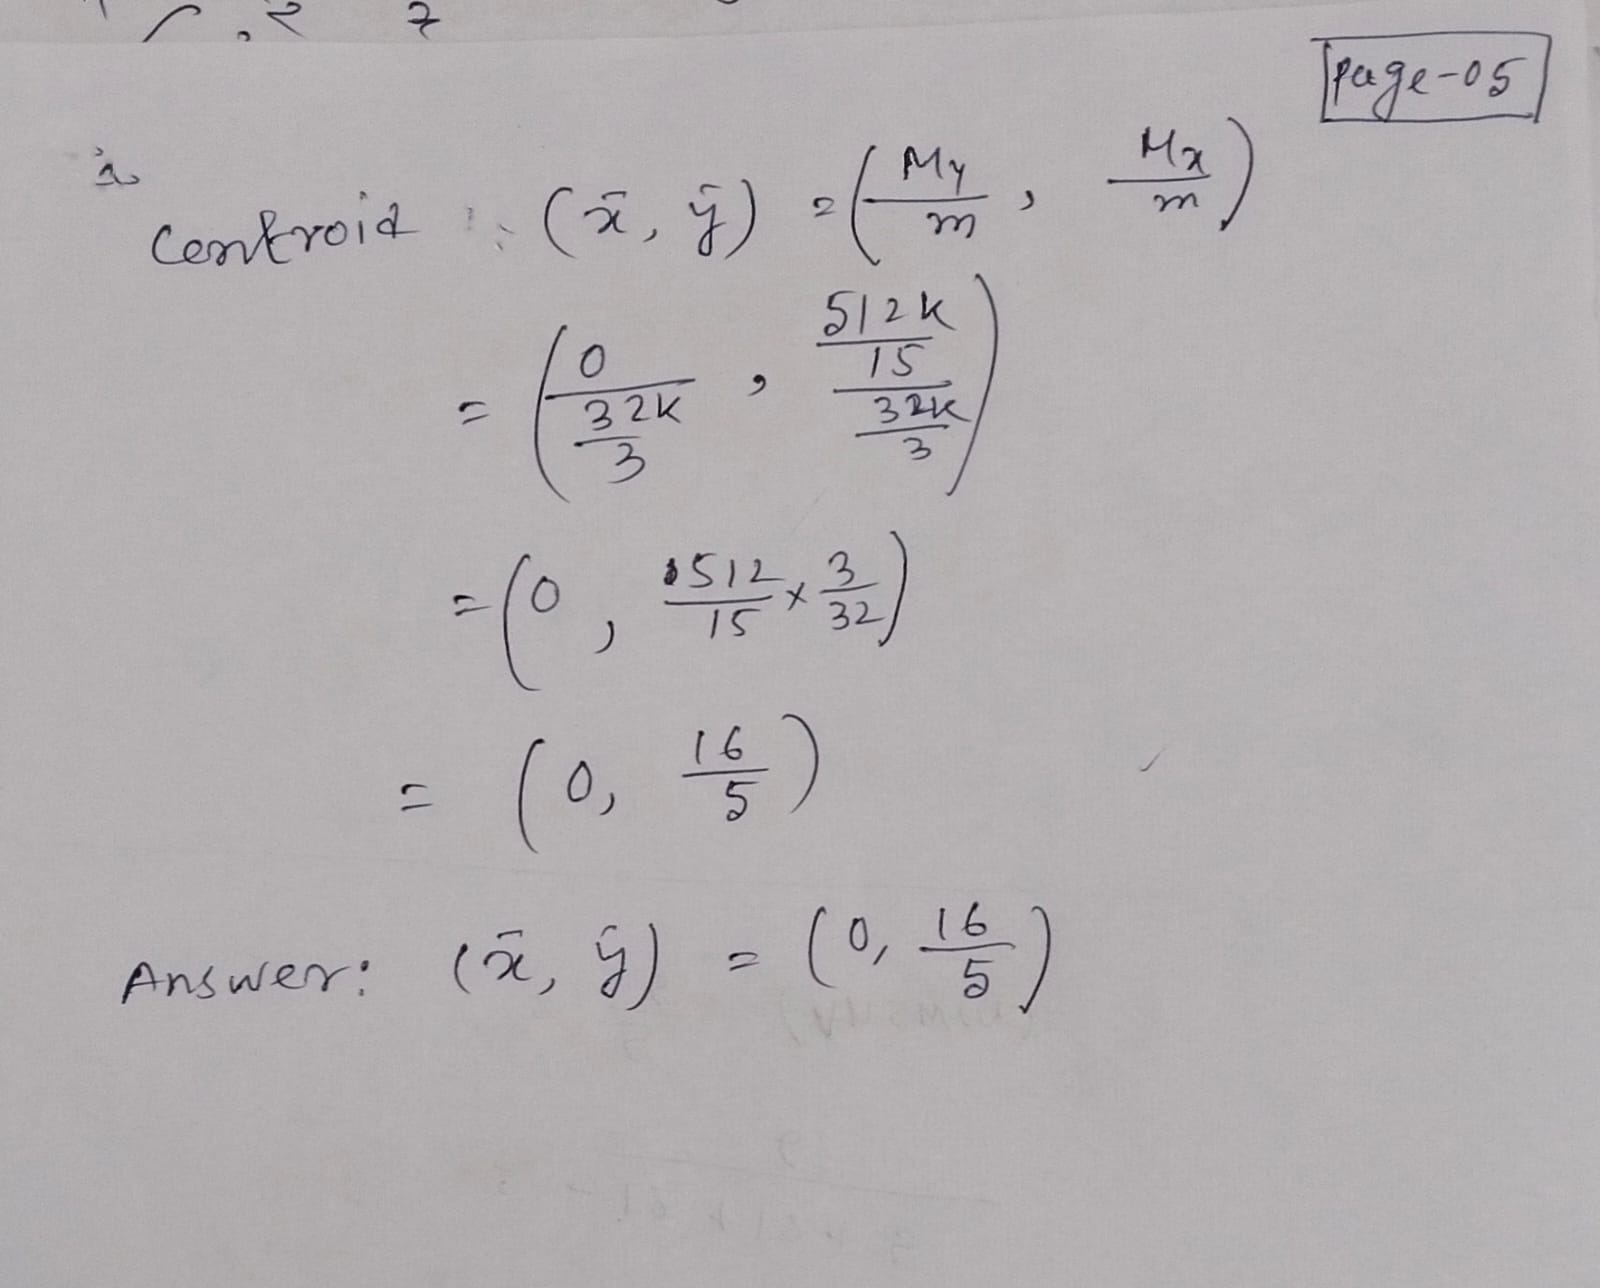 Page-05
Centroid : (x̄, ȳ) = (My/m, Mx/m)
= (0/(32K/3), (512K/15)/(32K/3))
= (0, 512/15 × 3/32)
= (0, 16/5)
Answer: (x̄, ȳ) = (0, 16/5)